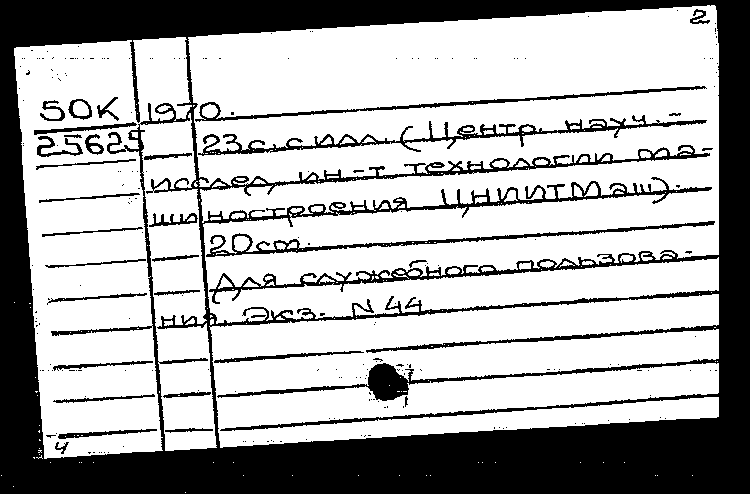 2
50К 1970.
25625 23с. с илл. (Центр. науч.-
исслед. ин-т технологии ма-
шиностроения ЦНИИТМаш).
20см.
Для служебного пользова-
ния. Экз. N 44
4